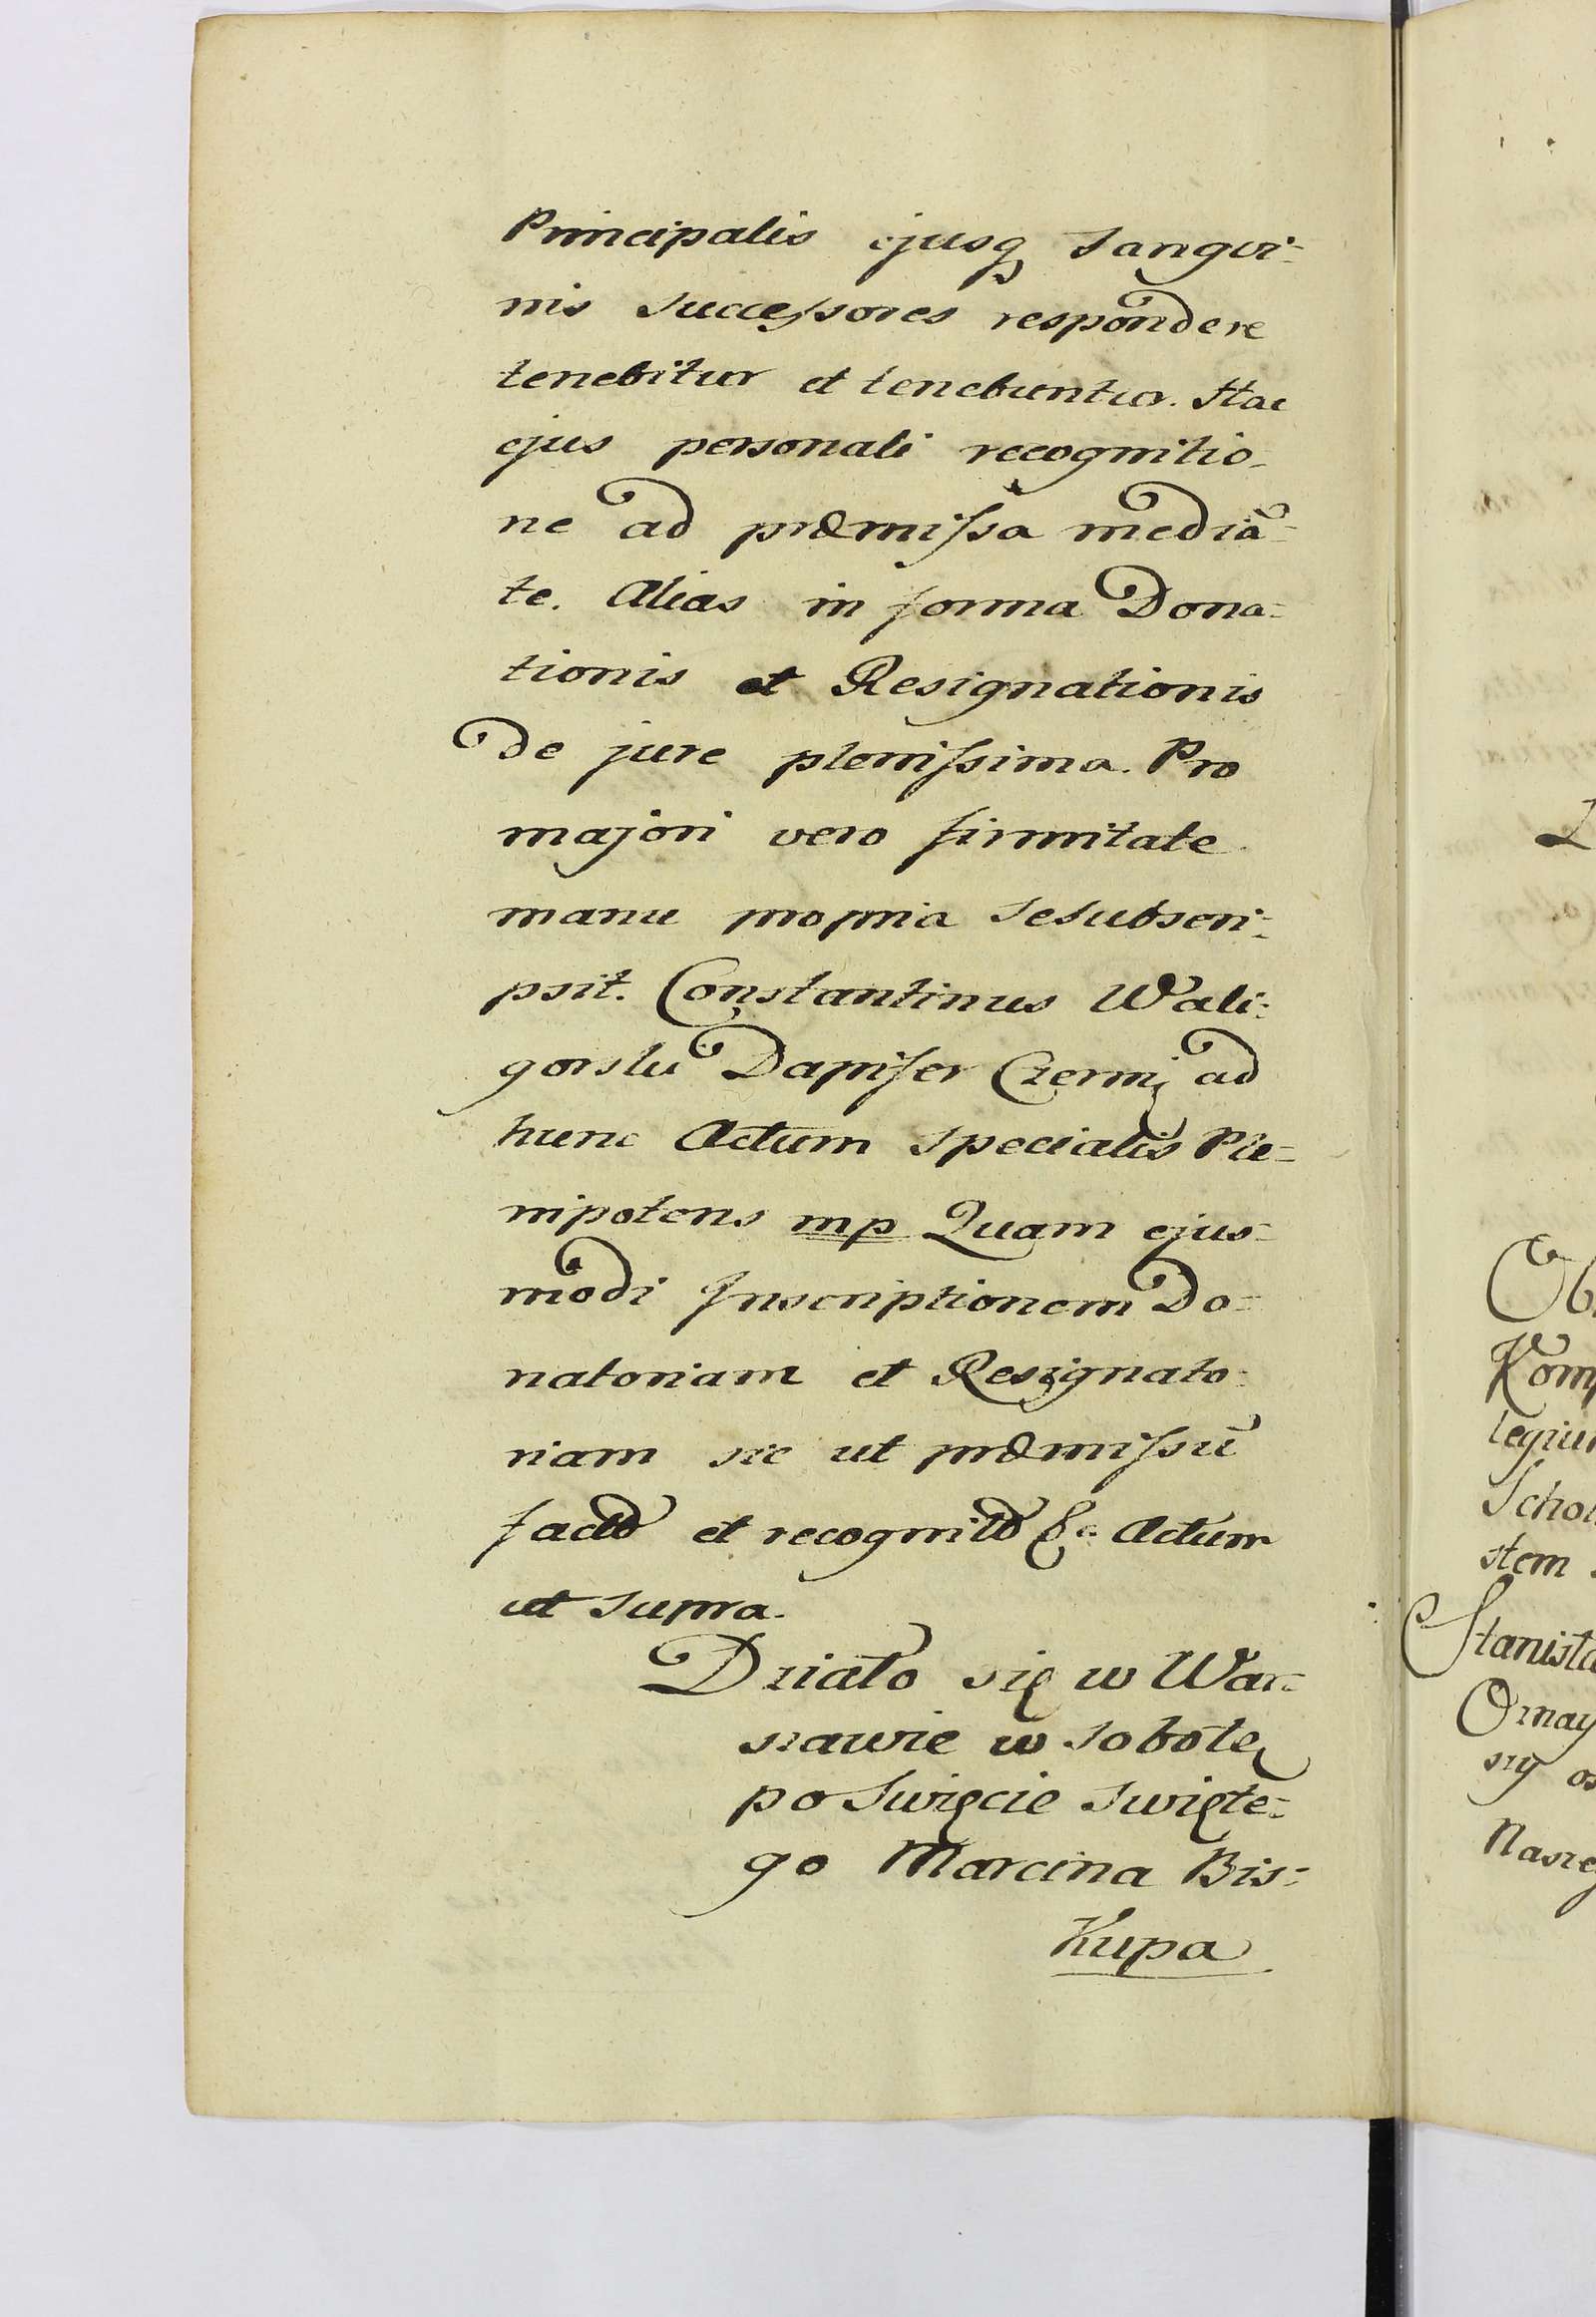 Principalis ejusq sangvi-
nis successores respondere
tenebitur et tenebuntur. Hac
ejus personali recognitio-
ne ad præmissa mediā-
te. Alias in forma Dona-
tionis et Resignationis
de jure plenissima. Pro
majori vero firmitate
manu propria sesubscri-
psit. Constantinus Wali-
gorski Dapifer Czerniẹ ad
hunc Actum specialis Ple-
nipotens mp Quam ejus-
modi Inscriptionem Do-
natoriam et Resignato-
riam sic ut præmissū
facto et recognito &c Actum
ut supra.
Działo się w War-
szawie w sobotę
po Swięcie Swięte-
go Marcina Bis-
kupa
Ob
Komp
legiu
Schol
stem
Stanisła
Omay
szy os
Nasze